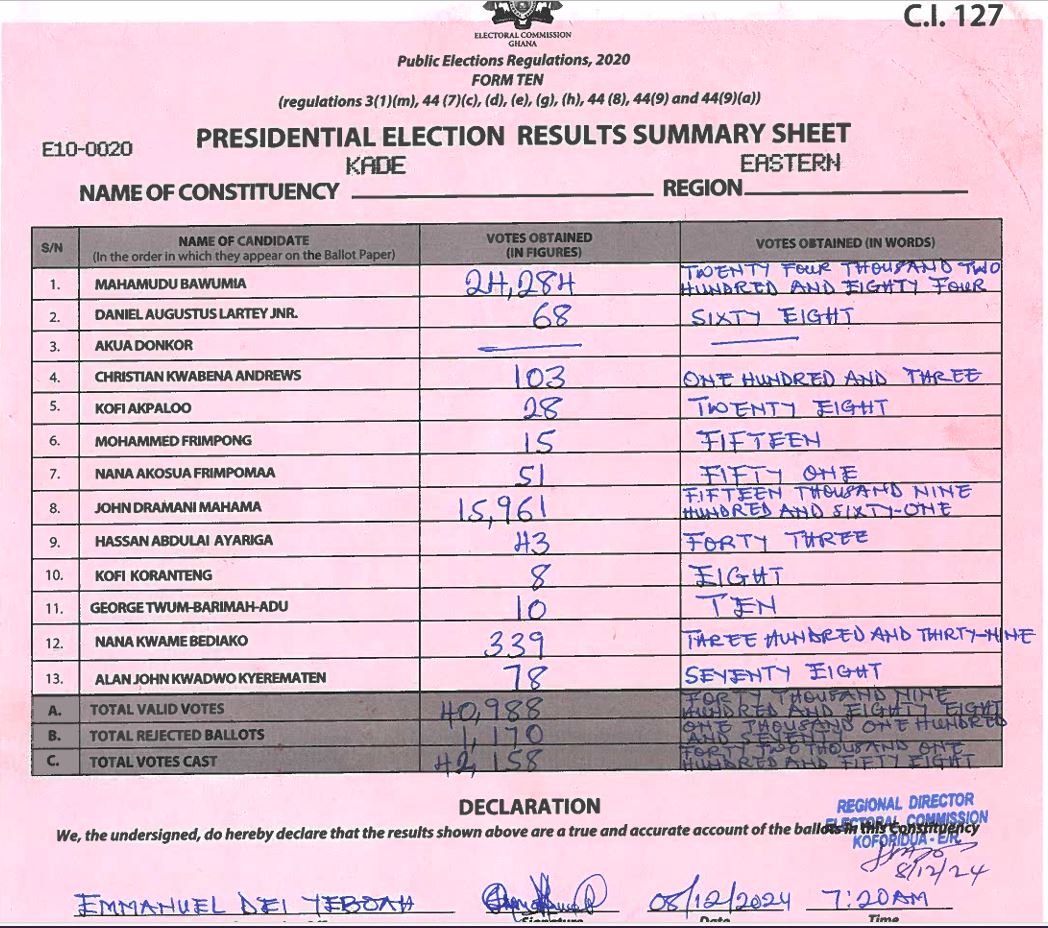 C.I. 127
ELECTORAL COMMISSION
GHANA
Public Elections Regulations, 2020
FORM TEN
(regulations 3(1)(m), 44 (7)(c), (d), (e), (g), (h), 44 (8), 44(9) and 44(9)(a))
PRESIDENTIAL ELECTION RESULTS SUMMARY SHEET
E10-0020
KADE EASTERN
NAME OF CONSTITUENCY REGION
S/N NAME OF CANDIDATE (In the order in which they appear on the Ballot Paper) VOTES OBTAINED (IN FIGURES) VOTES OBTAINED (IN WORDS)
1. MAHAMUDU BAWUMIA 24,284 TWENTY FOUR THOUSAND TWO HUNDRED AND EIGHTY FOUR
2. DANIEL AUGUSTUS LARTEY JNR. 68 SIXTY EIGHT
3. AKUA DONKOR
4. CHRISTIAN KWABENA ANDREWS 103 ONE HUNDRED AND THREE
5. KOFI AKPALOO 28 TWENTY EIGHT
6. MOHAMMED FRIMPONG 15 FIFTEEN
7. NANA AKOSUA FRIMPOMAA 51 FIFTY ONE
8. JOHN DRAMANI MAHAMA 15,961 FIFTEEN THOUSAND NINE HUNDRED AND SIXTY-ONE
9. HASSAN ABDULAI AYARIGA 43 FORTY THREE
10. KOFI KORANTENG 8 EIGHT
11. GEORGE TWUM-BARIMAH-ADU 10 TEN
12. NANA KWAME BEDIAKO 339 THREE HUNDRED AND THIRTY-NINE
13. ALAN JOHN KWADWO KYEREMATEN 78 SEVENTY EIGHT
A. TOTAL VALID VOTES 40,988 FORTY THOUSAND NINE HUNDRED AND EIGHTY EIGHT
B. TOTAL REJECTED BALLOTS 1,170 ONE THOUSAND ONE HUNDRED AND SEVENTY
C. TOTAL VOTES CAST 42,158 FORTY TWO THOUSAND ONE HUNDRED AND FIFTY EIGHT
DECLARATION
We, the undersigned, do hereby declare that the results shown above are a true and accurate account of the ballots in this Constituency
REGIONAL DIRECTOR
ELECTORAL COMMISSION
KOFORIDUA - E/R
8/12/24
EMMANUEL DEI YEBOAH 08/12/2024 7:20AM
Signature Date Time